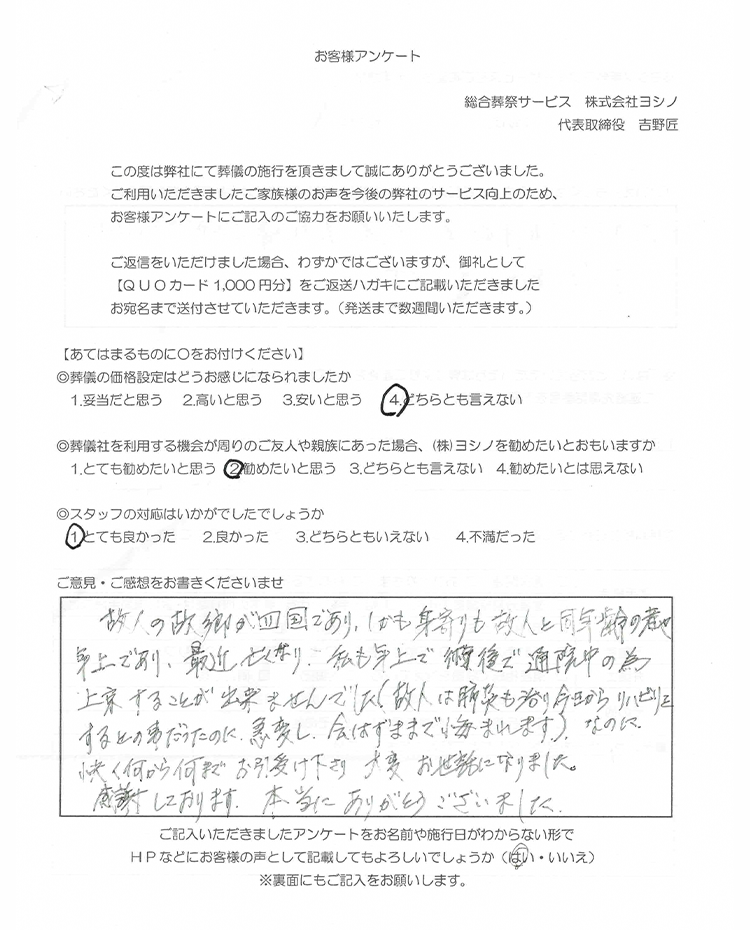 お客様アンケート
総合葬祭サービス 株式会社ヨシノ
代表取締役 吉野匠
この度は弊社にて葬儀の施行を頂きまして誠にありがとうございました。
ご利用いただきましたご家族様のお声を今後の弊社のサービス向上のため、
お客様アンケートにご記入のご協力をお願いいたします。
ご返信をいただけました場合、わずかではございますが、御礼として
【QUOカード1,000円分】をご返送ハガキにご記載いただきました
お宛名まで送付させていただきます。（発送まで数週間いただきます。）
【あてはまるものに〇をお付けください】
◎葬儀の価格設定はどうお感じになられましたか
1.妥当だと思う 2.高いと思う 3.安いと思う 4.どちらとも言えない
◎葬儀社を利用する機会が周りのご友人や親族にあった場合、(株)ヨシノを勧めたいとおもいますか
1.とても勧めたいと思う 2.勧めたいと思う 3.どちらとも言えない 4.勧めたいとは思えない
◎スタッフの対応はいかがでしたでしょうか
1.とても良かった 2.良かった 3.どちらともいえない 4.不満だった
ご意見・ご感想をお書きくださいませ
故人の故郷が四国であり、しかも身寄りも故人と同年齢の者や
年上であり、最近亡くなり、私も年上で術後で通院中の為
上京することが出来ませんでした（故人は肺炎も治り今日からリハビリを
するとの事だったのに、急変し、会はずままで悔まれます）。なのに、
快く何から何までお引受け下さり大変お世話になりました。
感謝しております。本当にありがとうございました。
ご記入いただきましたアンケートをお名前や施行日がわからない形で
HPなどにお客様の声として記載してもよろしいでしょうか（はい・いいえ）
※裏面にもご記入をお願いします。